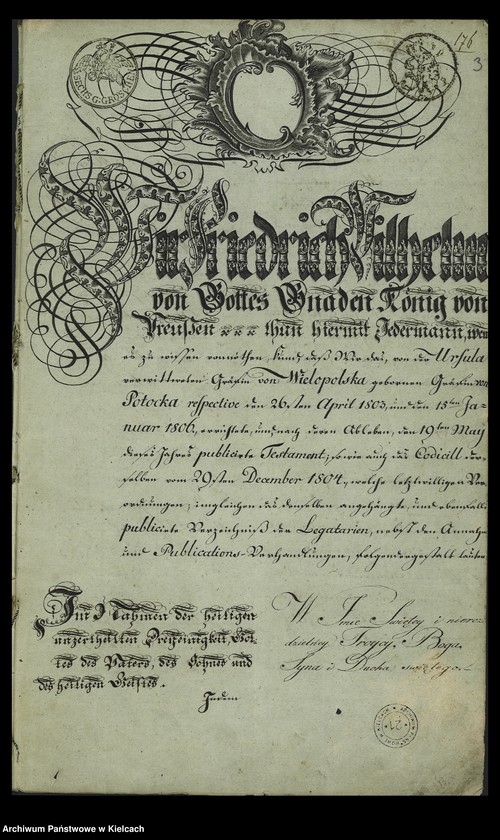 176
3
SECHS G: GROSCHEN
Wir Friedrich Wilhelm
von Gottes Gnaden König von
Preußen xxx thun hiermit Jedermann, wem
es zu wissen vonnöthen, kund daß Wir das, von der Ursula
verwittweten Gräfin von Wielopolska gebornen Gräfin von
Potocka respective den 26sten April 1803, und den 15ten Ja-
nuar 1806, errichtete, und nach deren Ableben, den 19ten May
dieses Jahres publicirte Testament, so wie auch das Codicill der-
selben vom 29sten December 1804, welche letztwilligen Ver
ordnungen, imgleichen das denselben angehängte, und ebenfalls
publicirte Verzeichniß der Legatarien, nebst den Annahme
und Publications-Verhandlungen, folgendergestalt lauten
Im Nahmen der heiligen
unzertheilten Dreieinigkeit Got-
tes des Vaters, des Sohnes und
des heiligen Geistes.
Indem
W Imie Swiętey i nieroz
dzielney Troycy, Boga
Syna i Ducha swiętego.
21
Archiwum Państwowe w Kielcach